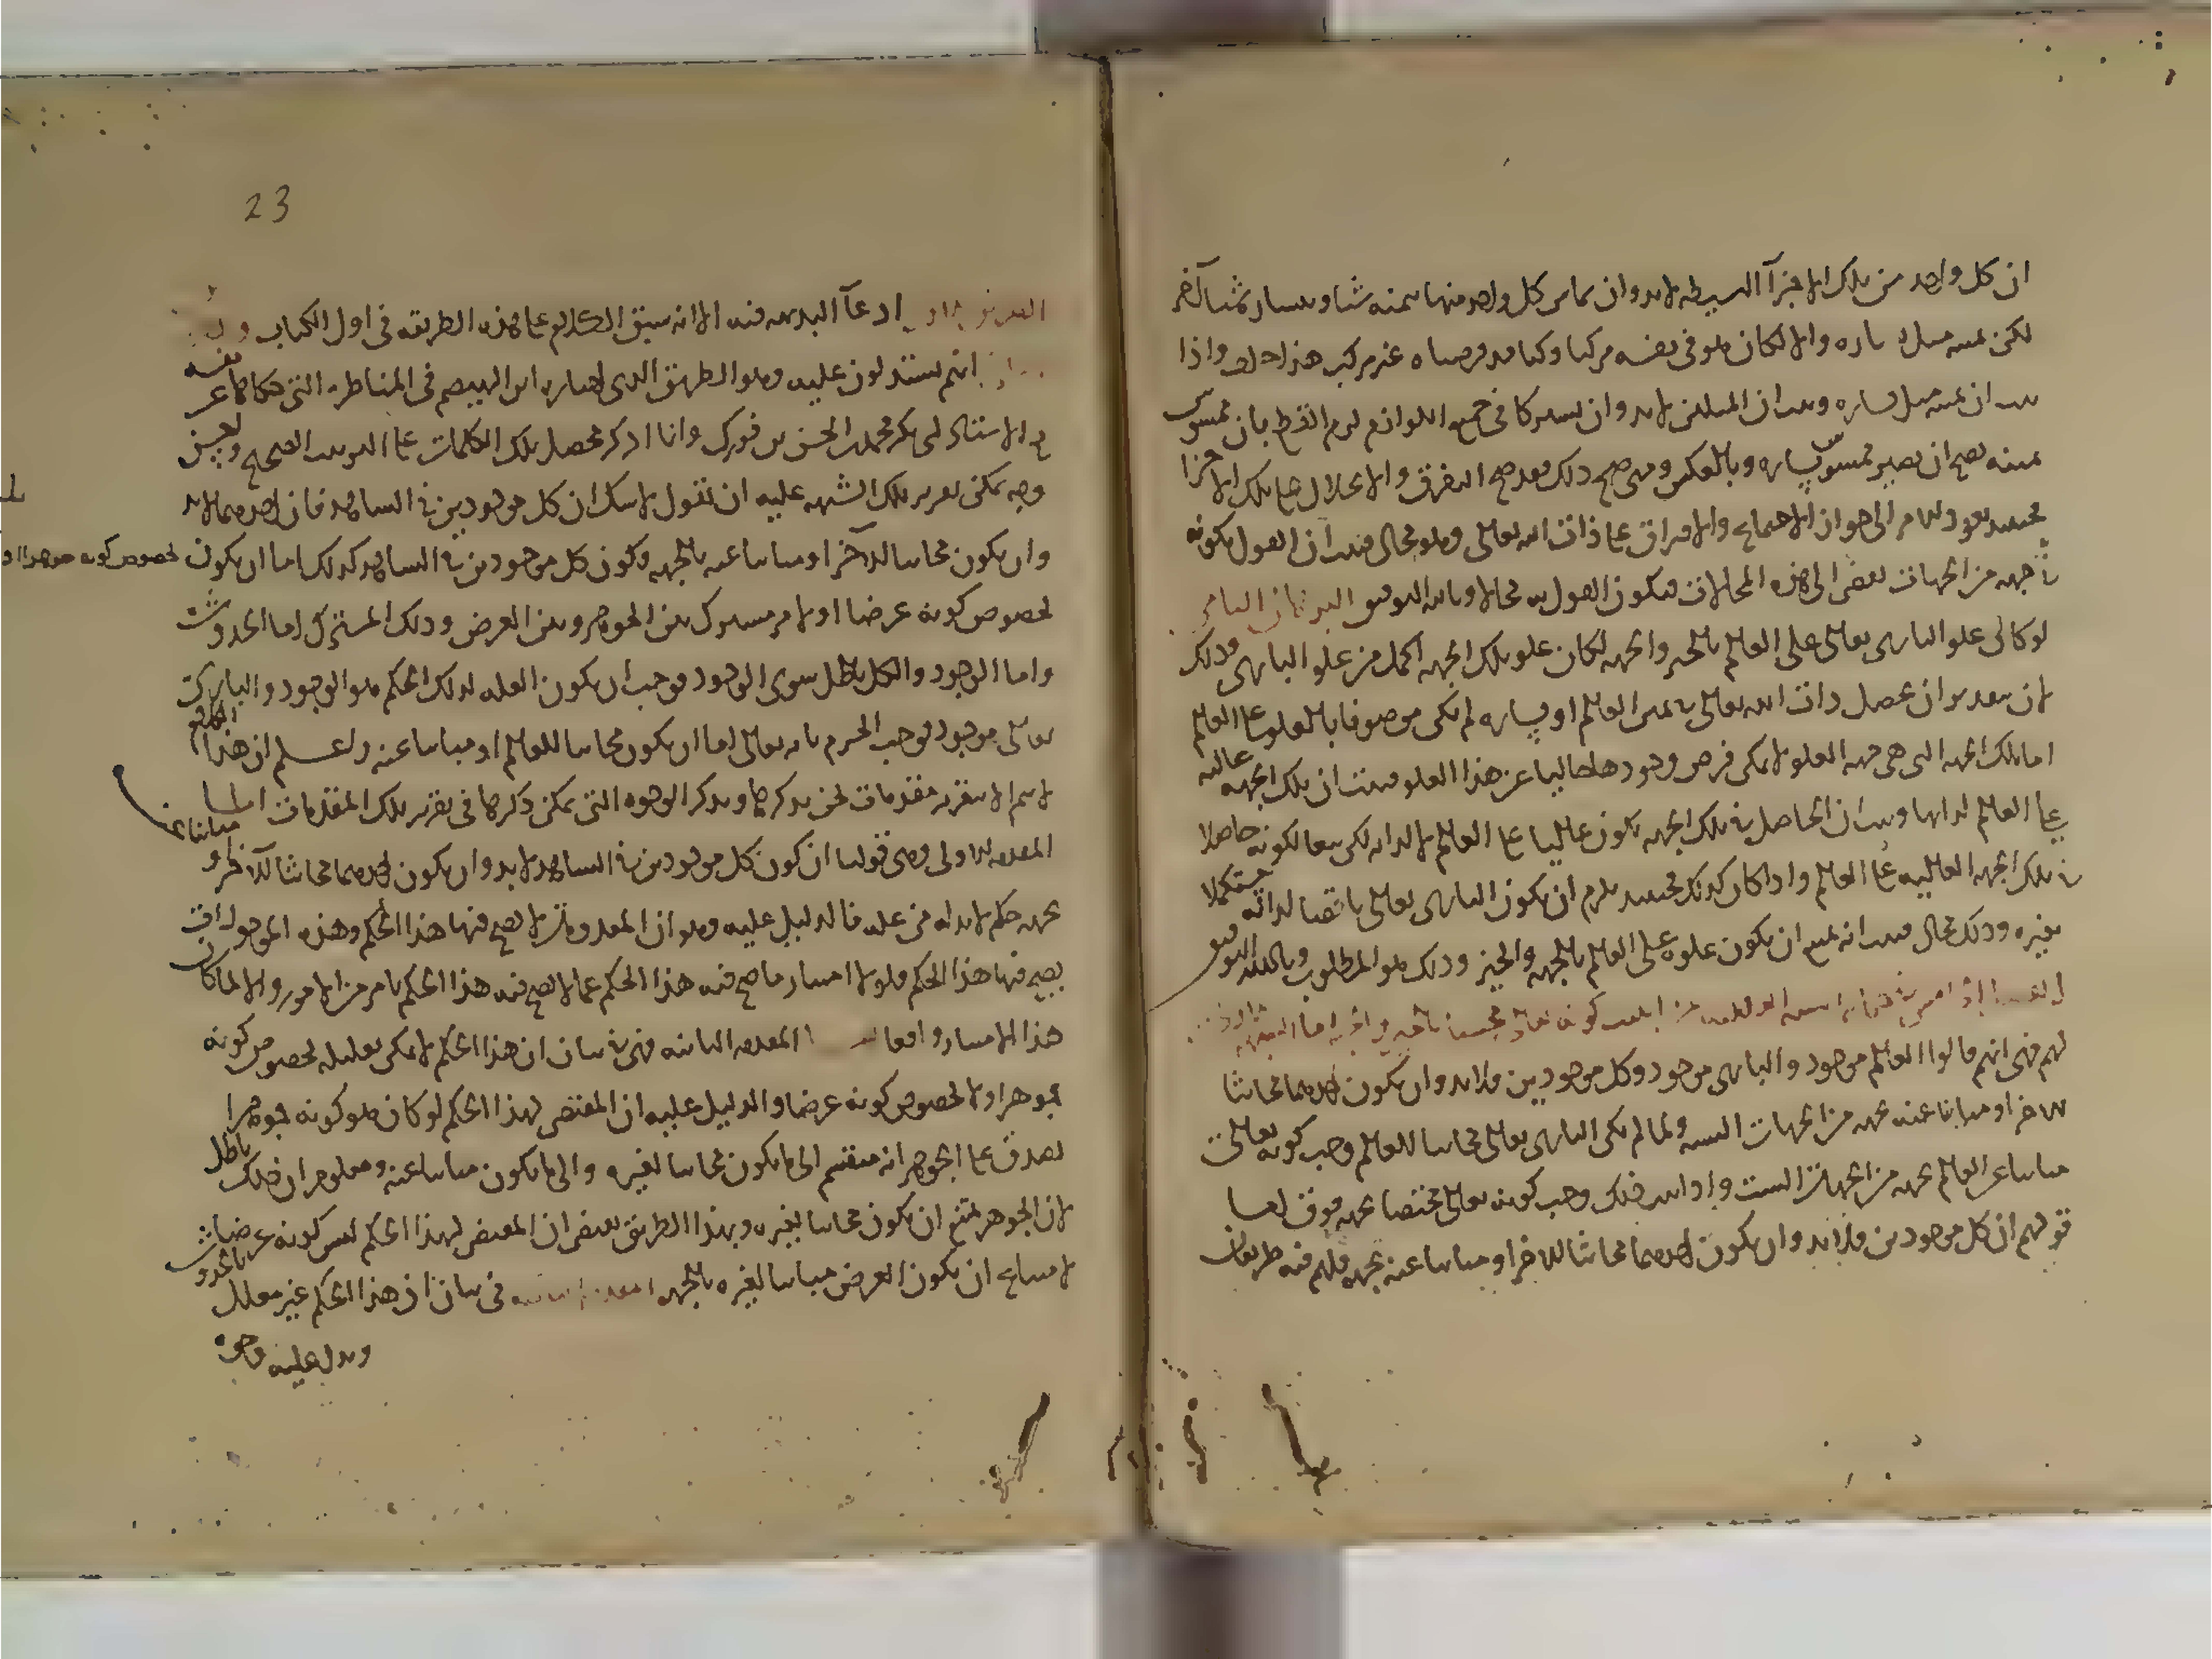 ان كل واحد من تلك الاجزآ البسيطه لابد وان يماس كل واحد منها بيمينه شيا وبيساره شيا آخر
لكن يمينه مثل يساره والا لكان هو فى نفسه مركبا وكنا قد فرضناه غير مركب هذا خلف واذا
ثبت ان يمينه مثل يساره وثبت ان المثلين لابد وان يشتركا فى جميع اللوازم لزم القطع بان ممسوس
يمينه يصح ان يصير ممسوس يساره وبالعكس ومتى صح ذلك فقد صح التفرق والانحلال على تلك الاجزا
فحينئذ يعود الامر الى جواز الاجتماع والافتراق على ذات الله تعالى وهو محال فثبت ان القول بكونه
فى جهه من الجهات يفضى الى هذه المحالات فيكون القول به محالا وبالله التوفيق البرهان الثامن
لو كان علو البارى تعالى على العالم بالحيز والجهه لكان علو تلك الجهه اكمل من علو البارى وذلك
لان بتقدير ان يحصل ذات الله تعالى فى يمين العالم او يساره لم يكن موصوفا بالعلو على العالم
اما تلك الجهه التى هى جهه العلو لا يمكن فرض وجودها خاليا عن هذا العلو فثبت ان تلك الجهه عاليه
على العالم لذاتها وثبت ان الحاصل فى تلك الجهه يكون عاليا على العالم لا لذاته لكن تبعا لكونه حاصلا
فى تلك الجهه العاليه على العالم واذا كان كذلك فحينئذ يلزم ان يكون البارى تعالى ناقصا لذاته مستكملا
بغيره وذلك محال فثبت انه يمتنع ان يكون علوه على العالم بالجهه والحيز وذلك هو المطلوب وبالله التوفيق
لهم فهى انهم قالوا العالم موجود والبارى موجود وكل موجودين فلابد وان يكون احدهما محايثا
للاخر او مباينا عنه بجهه من الجهات السته ولما لم يكن البارى تعالى محايثا للعالم وجب كونه تعالى
مباينا عن العالم بجهه من الجهات الست واذا ثبت ذلك وجب كونه تعالى مختصا بجهه فوق اما
قولهم ان كل موجودين فلابد وان يكون احدهما محايثا للاخر او مباينا عنه بجهه فلهم فيه طريقان
23
ادعآ البديهه فيه الا انه سبق الكلام على هذه الطريقه فى اول الكتاب
انهم يستدلون عليه وهو الطريق الذى اختاره ابن الهيصم فى المناظره التى حكاها عن نفسه
مع الاستاذ ابى بكر محمد بن الحسن بن فورك وانا اذكر محصل تلك الكلمات على الترتيب الصحيح
وجه يمكن تقرير تلك الشبهه عليه ان نقول لا شك ان كل موجودين فى الشاهد فان احدهما لابد
وان يكون محايثا للآخر او مباينا عنه بالجهه وكون كل موجودين فى الشاهد كذلك اما ان يكون لخصوص كونه جوهرا او
لخصوص كونه عرضا او لامر مشترك بين الجوهر وبين العرض وذلك المشترك اما الحدوث
واما الوجود والكل باطل سوى الوجود فوجب ان يكون العله لذلك الحكم هو الوجود والبارى
تعالى موجود فوجب الجزم بانه تعالى اما ان يكون محايثا للعالم او مباينا عنه واعلم ان هذا الكلام
لا يتم الا بتقرير مقدمات نحن نذكرها ونذكر الوجوه التى يمكن ذكرها فى تقرير تلك المقدمات اما
المقدمه الاولى وهى قولنا ان كون كل موجودين فى الشاهد لابد وان يكون احدهما محايثا للآخر او مباينا عنه
بجهه حكم لابد له من عله فالدليل عليه وهو ان المعدومات لا يصح فيها هذا الحكم وهذه الموجودات
يصح فيها هذا الحكم فلولا امتياز ما صح فيه هذا الحكم عما لا يصح فيه هذا الحكم بامر من الامور والا لما كان
هذا الامتياز واقعا المقدمه الثانيه فهى فى بيان ان هذا الحكم لا يمكن تعليله بخصوص كونه
جوهرا ولا بخصوص كونه عرضا والدليل عليه ان المقتضى لهذا الحكم لو كان هو كونه جوهرا
لصدق على الجوهر انه منقسم الى ما يكون محايثا لغيره والى ما يكون مباينا عنه ومعلوم ان ذلك باطل
لان الجوهر يمتنع ان يكون محايثا لغيره وبهذا الطريق يبين ان المقتضى لهذا الحكم ليس كونه عرضا
لامتناع ان يكون العرض مباينا لغيره بالجهه المقدمه الثالثه فى بيان ان هذا الحكم غير معلل بالحدوث
ويدل عليه وجوه